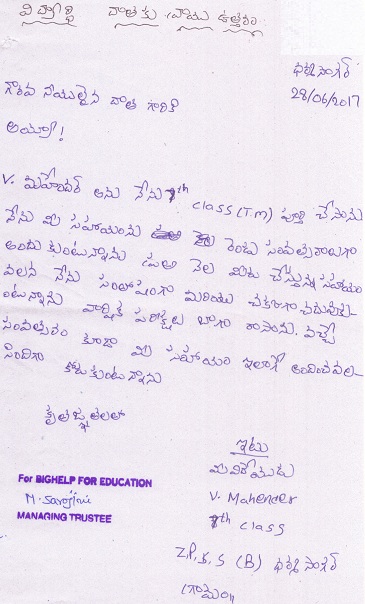 విద్యార్థి దాతకు వ్రాయు ఉత్తరం
ధర్మసాగర్
28/06/2017
గౌరవ నీయులైన దాత గారికి
అయ్యా!
V. మహేందర్ అను నేను 7th class (T.m) పూర్తి చేసాను
నేను మీ సహాయంను రెండు సంవత్సరాలుగా
అందుకుంటున్నాను ప్రతి నెల మీరు చేస్తున్న సహాయం
వలన నేను సంతోషంగా మరియు చక్కగా చదువుకు-
ంటున్నాను వార్షిక పరీక్షలు బాగా రాసాను. వచ్చే
సంవత్సరం కూడా మీ సహాయం ఇలాగే అందించవల-
సిందిగా కోరుకుంటున్నాను
కృతజ్ఞతలతో
ఇట్లు
మీ విధేయుడు
V. Mahender
7th class
Z.P.S.S (B) ధర్మసాగర్
గ్రామం
For BIGHELP FOR EDUCATION
M. Sarojini
MANAGING TRUSTEE